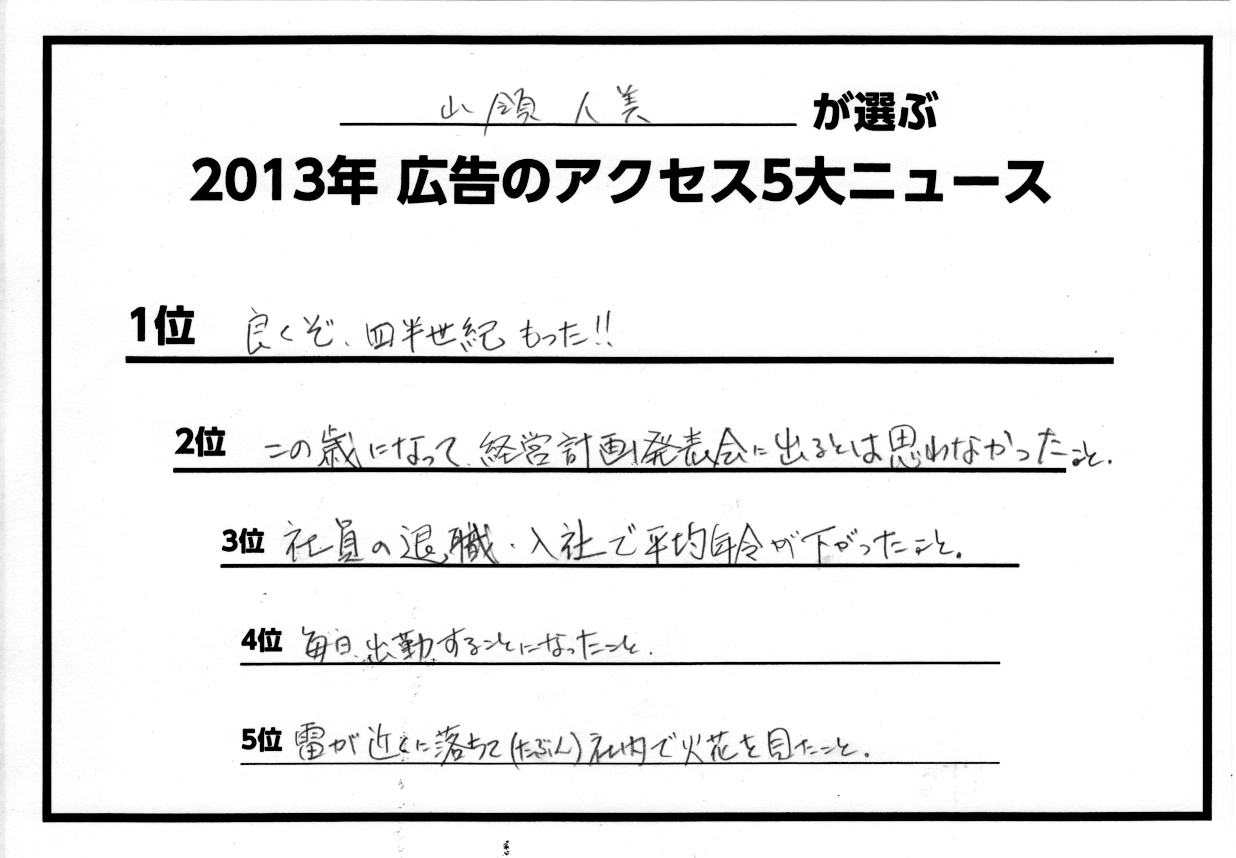 山領 人美 が選ぶ
2013年 広告のアクセス5大ニュース
1位 良くぞ、四半世紀 もった!!
2位 この歳になって、経営計画発表会に出るとは思わなかったこと.
3位 社員の退職・入社で平均年令が下がったこと。
4位 毎日、出勤することになったこと.
5位 雷が近くに落ちて(たぶん)社内で火花を見たこと.